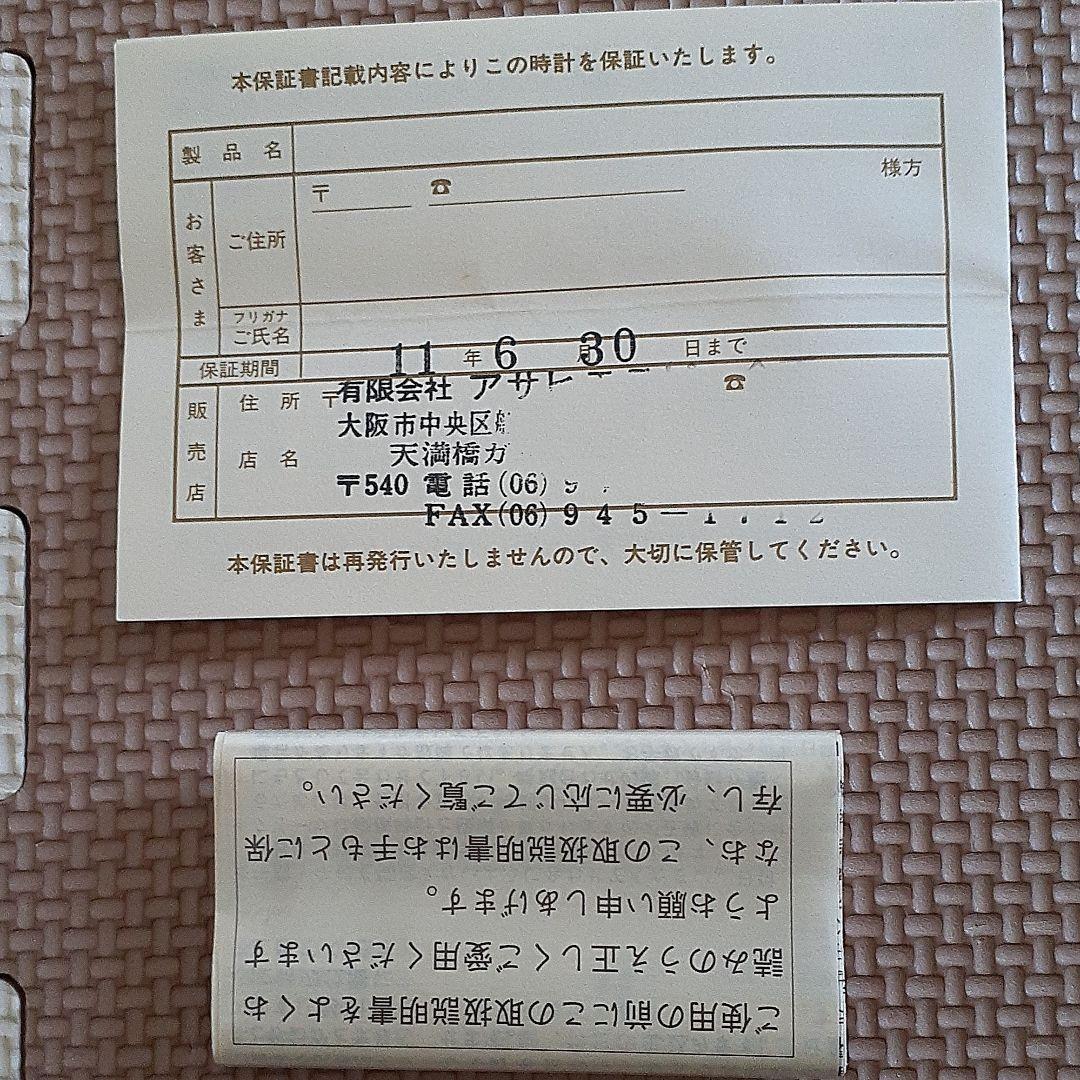 本保証書記載内容によりこの時計を保証いたします。
製品名
お客さま
ご住所
〒 ☎ 様方
フリガナ
ご氏名
保証期間 11年6月30日まで
販売店
住所 〒 ☎
店名
有限会社 アサ
大阪市中央区
天満橋
〒540 電話(06)
FAX(06)945-
本保証書は再発行いたしませんので、大切に保管してください。
ご使用の前にこの取扱説明書をよくお
読みのうえ正しくご愛用くださいます
ようお願い申しあげます。
なお、この取扱説明書はお手もとに保
存し、必要に応じてご覧ください。